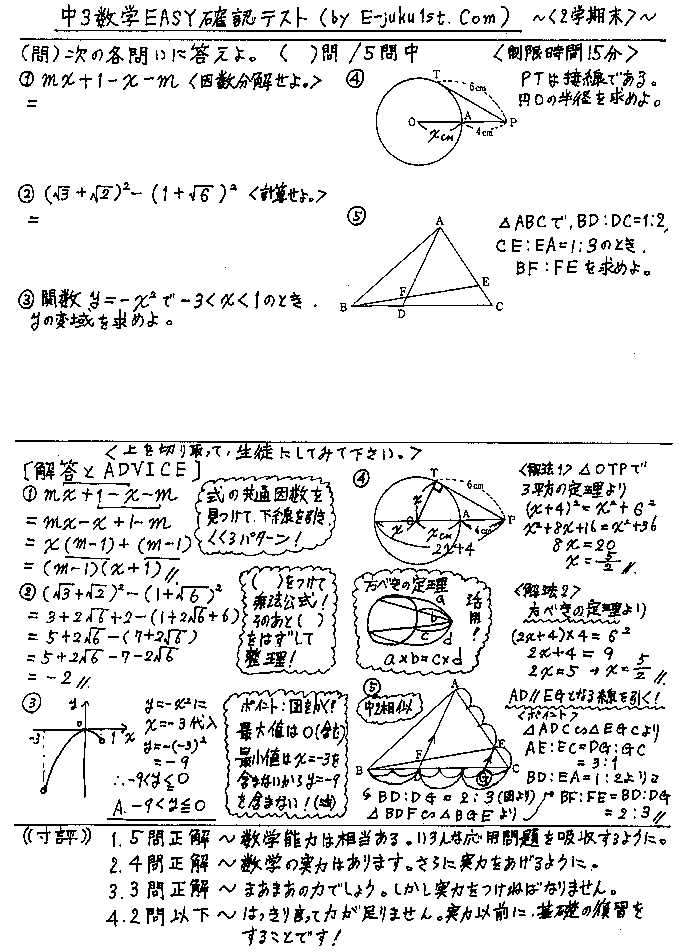 中3数学EASY確認テスト(by E-juku1st.Com) ～<2学期末>～
(問)次の各問いに答えよ。( )問/5問中 <制限時間15分>
① mx+1-x-m <因数分解せよ。>
=
② (√3+√2)²-(1+√6)² <計算せよ。>
=
③ 関数 y=-x²で-3<x<1のとき.
yの変域を求めよ。
④
T
6cm
O
A
P
xcm
4cm
PTは接線である。
円Oの半径を求めよ。
⑤
A
B
C
D
E
F
△ABCで,BD:DC=1:2,
CE:EA=1:3のとき.
BF:FEを求めよ。
<上を切り取って,生徒にしてみて下さい。>
[解答とADVICE]
① mx+1-x-m
=mx-x+1-m
=x(m-1)+(m-1)
=(m-1)(x+1)
式の共通因数を
見つけて,下線を引き
くくるパターン!
② (√3+√2)²-(1+√6)²
=3+2√6+2-(1+2√6+6)
=5+2√6-(7+2√6)
=5+2√6-7-2√6
=-2
( )をつけて
乗法公式!
そのあと( )
をはずして
整理!
③
y
-3
0
1
x
y=-x²に
x=-3代入
y=-(-3)²
=-9
∴-9<y≦0
A. -9<y≦0
ポイント:図をかく!
最大値は0(含む)
最小値はx=-3を
含まないからy=-9
を含まない!
④
T
6cm
x
O
xcm
A
4cm
P
2x+4
<解法1> △OTPで
3平方の定理より
(x+4)²=x²+6²
x²+8x+16=x²+36
8x=20
x=5/2
方べきの定理
活用!
a
b
c
d
a×b=c×d
<解法2>
方べきの定理より
(2x+4)×4=6²
2x+4=9
2x=5→x=5/2
⑤
中2相似
A
B
C
D
E
F
G
AD//EGとなる線を引く!
<ポイント>
△ADC∽△EGCより
AE:EC=DG:GC
=3:1
BD:EA=1:2より
BD:DG=2:3(図より)
△BDF∽△BGEより
BF:FE=BD:DG
=2:3
((寸評)) 1.5問正解～数学能力は相当ある。いろんな応用問題を吸収するように。
2.4問正解～数学の実力はあります。さらに実力をあげるように。
3.3問正解～まあまあの力でしょう。しかし実力をつけねばなりません。
4.2問以下～はっきり言って力が足りません。実力以前に,基礎の復習を
することです!